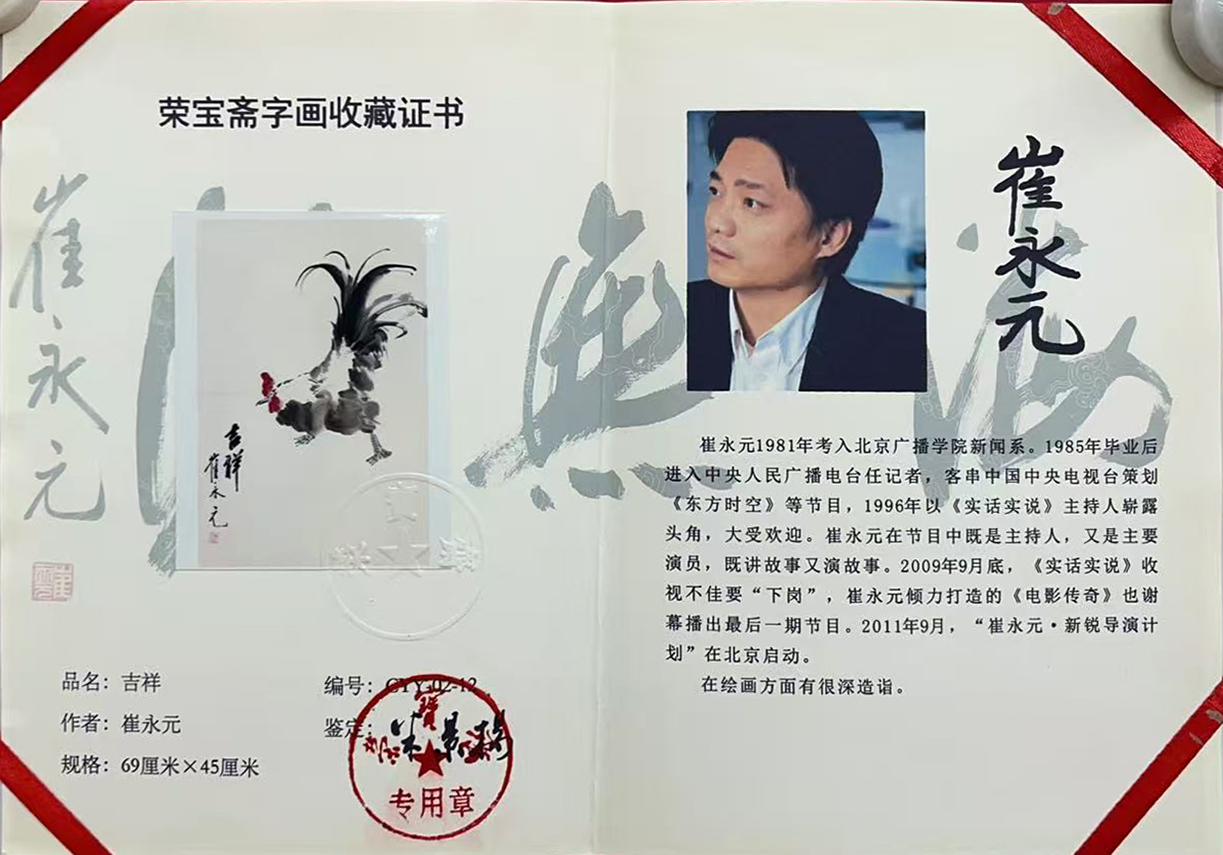 荣宝斋字画收藏证书
崔永元
吉祥
崔永元
品名：吉祥
作者：崔永元
规格：69厘米×45厘米
编号：CYY-02-12
鉴定：
专用章
崔永元
崔永元1981年考入北京广播学院新闻系。1985年毕业后
进入中央人民广播电台任记者，客串中国中央电视台策划
《东方时空》等节目，1996年以《实话实说》主持人崭露
头角，大受欢迎。崔永元在节目中既是主持人，又是主要
演员，既讲故事又演故事。2009年9月底，《实话实说》收
视不佳要“下岗”，崔永元倾力打造的《电影传奇》也谢
幕播出最后一期节目。2011年9月，“崔永元·新锐导演计
划”在北京启动。
在绘画方面有很深造诣。